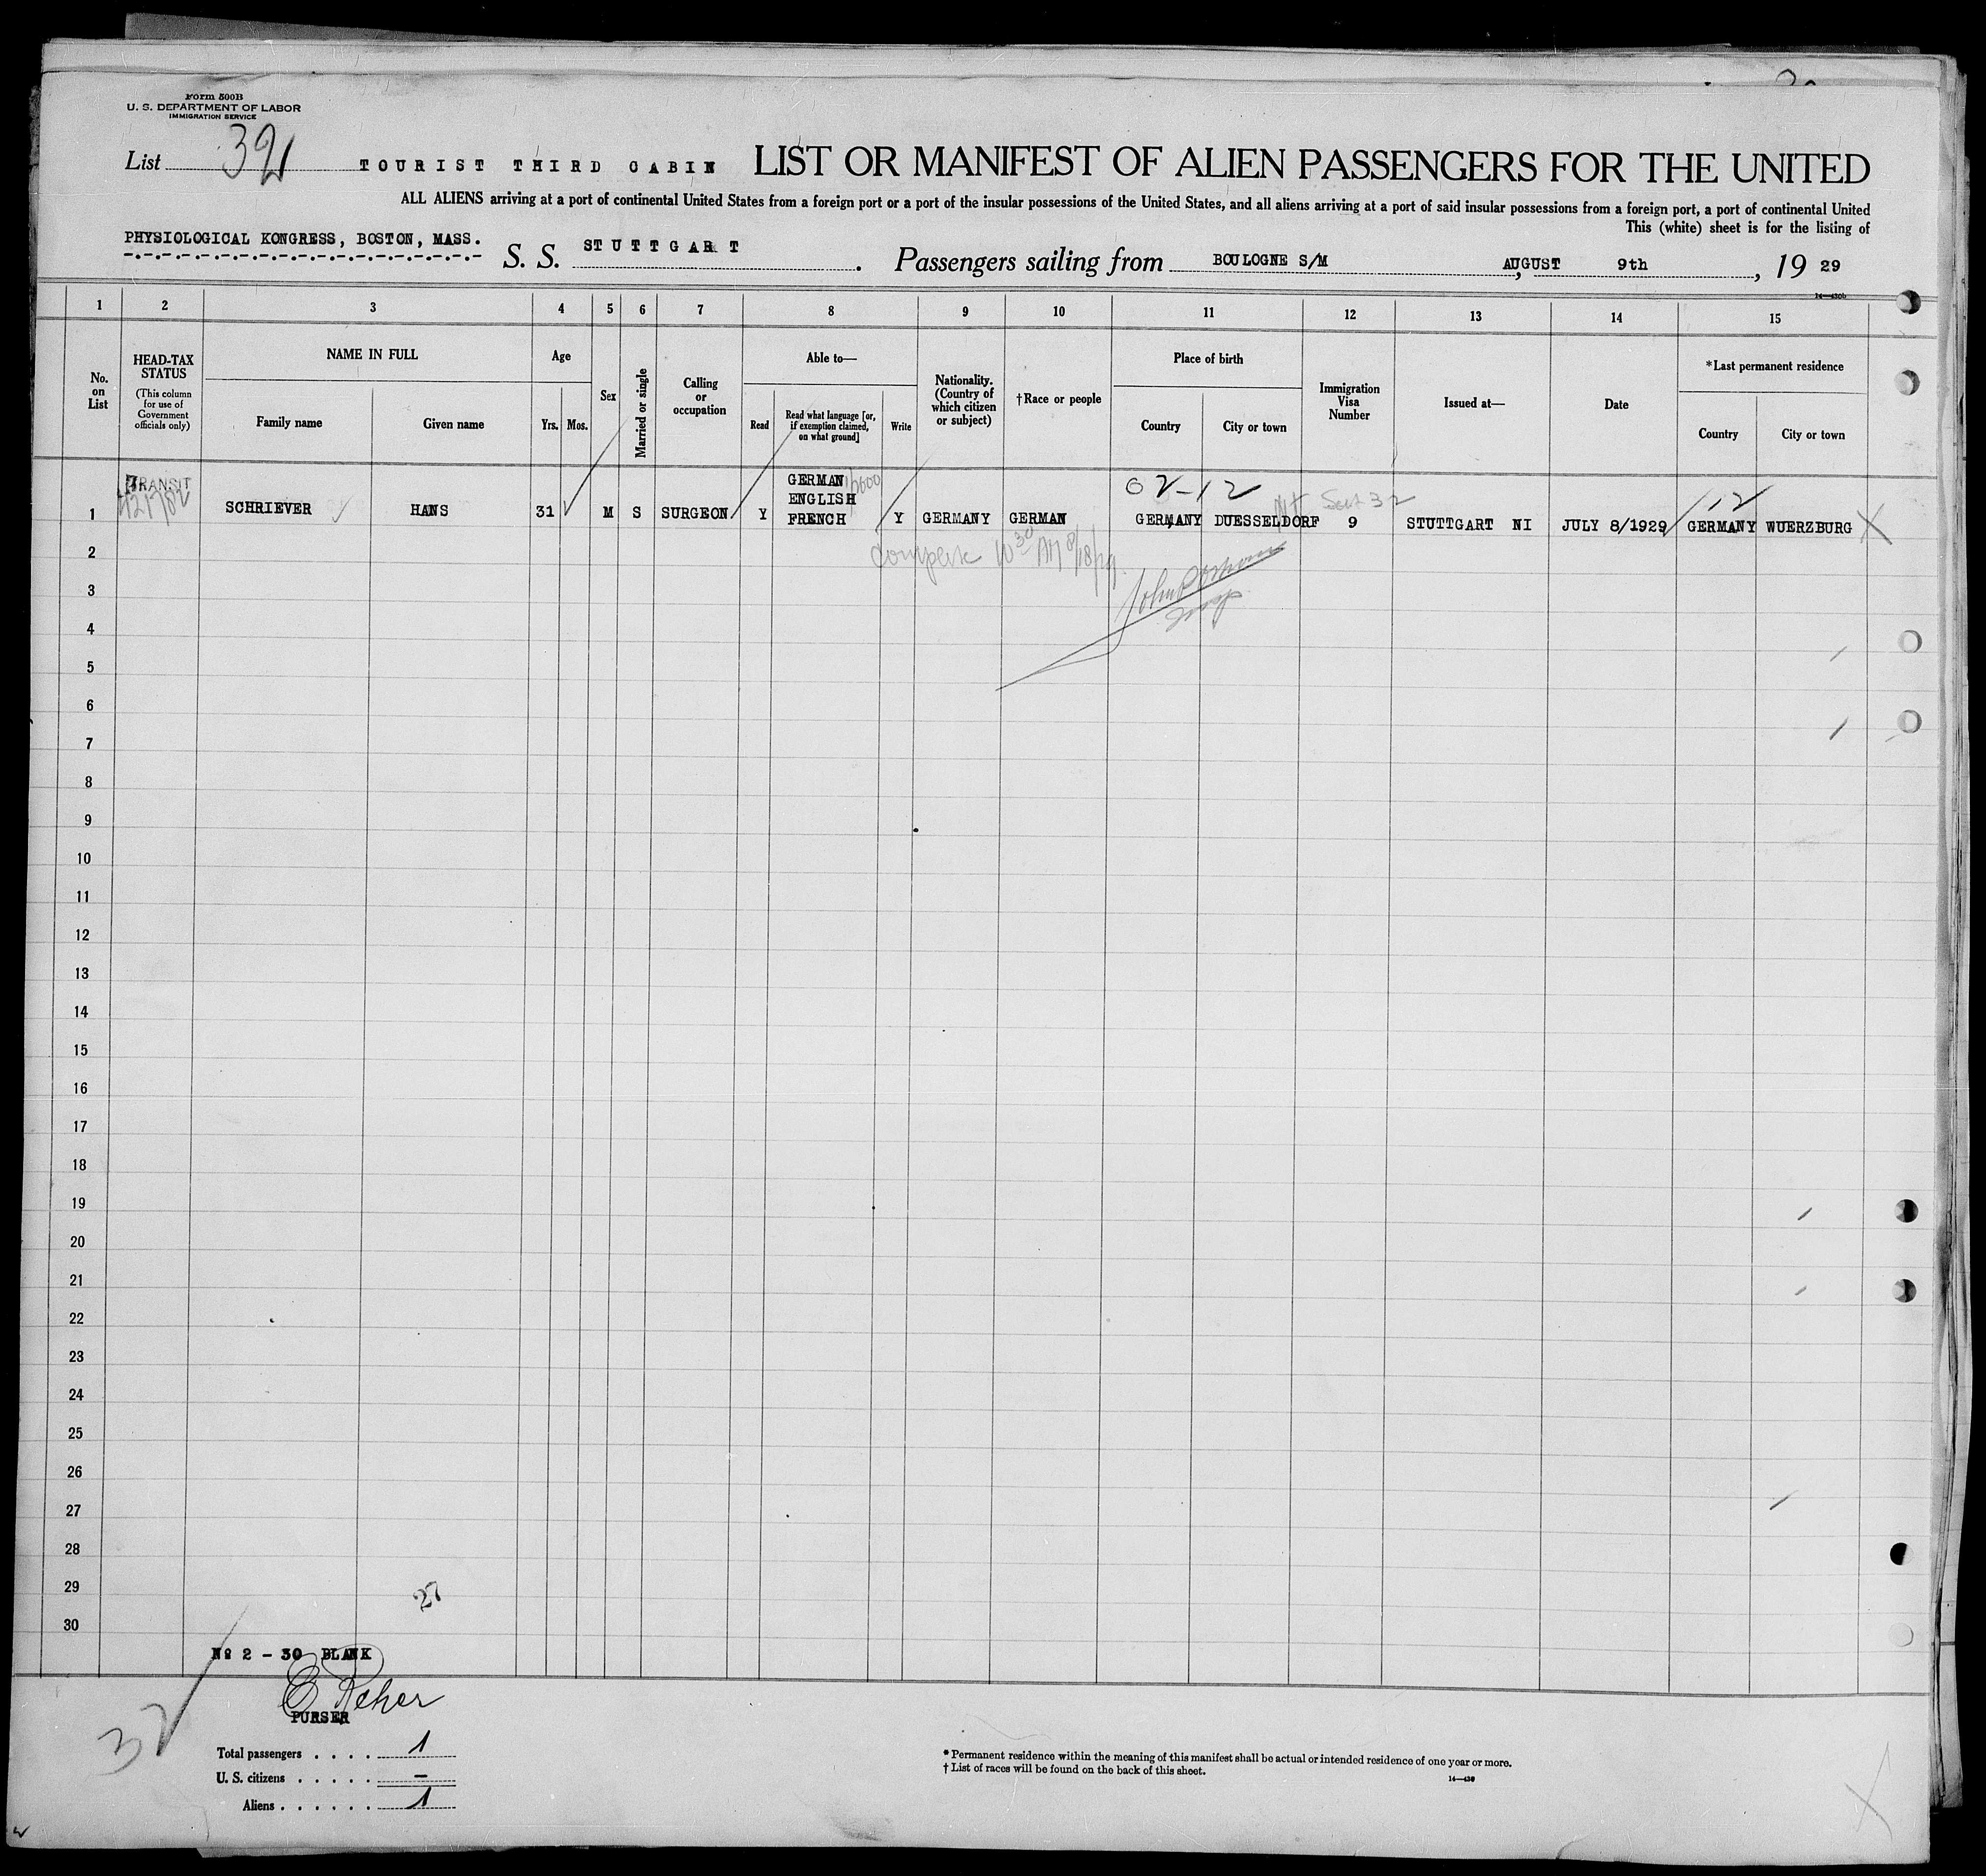 Form 500B
U. S. DEPARTMENT OF LABOR
IMMIGRATION SERVICE
List 32 TOURIST THIRD CABIN LIST OR MANIFEST OF ALIEN PASSENGERS FOR THE UNITED
ALL ALIENS arriving at a port of continental United States from a foreign port or a port of the insular possessions of the United States, and all aliens arriving at a port of said insular possessions from a foreign port, a port of continental United
This (white) sheet is for the listing of
PHYSIOLOGICAL KONGRESS, BOSTON, MASS. S. S. STUTTGART. Passengers sailing from BOULOGNE S/M, AUGUST 9th, 19 29
14—430b
1 2 3 4 5 6 7 8 9 10 11 12 13 14 15
No. on List
HEAD-TAX STATUS
(This column for use of Government officials only)
NAME IN FULL
Family name Given name
Age
Yrs. Mos.
Sex
Married or single
Calling or occupation
Able to—
Read
Read what language [or, if exemption claimed, on what ground]
Write
Nationality. (Country of which citizen or subject)
†Race or people
Place of birth
Country City or town
Immigration Visa Number
Issued at—
Date
*Last permanent residence
Country City or town
TRANSIT
02-12
112
1 SCHRIEVER HANS 31 M S SURGEON Y GERMAN ENGLISH FRENCH Y GERMANY GERMAN GERMANY DUESSELDORF 9 STUTTGART NI JULY 8/1929 GERMANY WUERZBURG X
2
3
4
5
6
7
8
9
10
11
12
13
14
15
16
17
18
19
20
21
22
23
24
25
26
27
28
29
27
30
No 2 - 30 BLANK
E Reher
PURSER
32
Total passengers . . . . 1
U. S. citizens . . . . . –
Aliens . . . . . . 1
* Permanent residence within the meaning of this manifest shall be actual or intended residence of one year or more.
† List of races will be found on the back of this sheet.
14—430